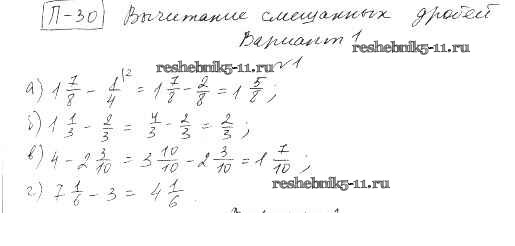 П-30 Вычитание смешанных дробей
Вариант 1
reshebnik5-11.ru
reshebnik5-11.ru
№1
а) 1 7/8 - 1/4 |2 = 1 7/8 - 2/8 = 1 5/8;
б) 1 1/3 - 2/3 = 4/3 - 2/3 = 2/3;
в) 4 - 2 3/10 = 3 10/10 - 2 3/10 = 1 7/10;
г) 7 1/6 - 3 = 4 1/6.
reshebnik5-11.ru